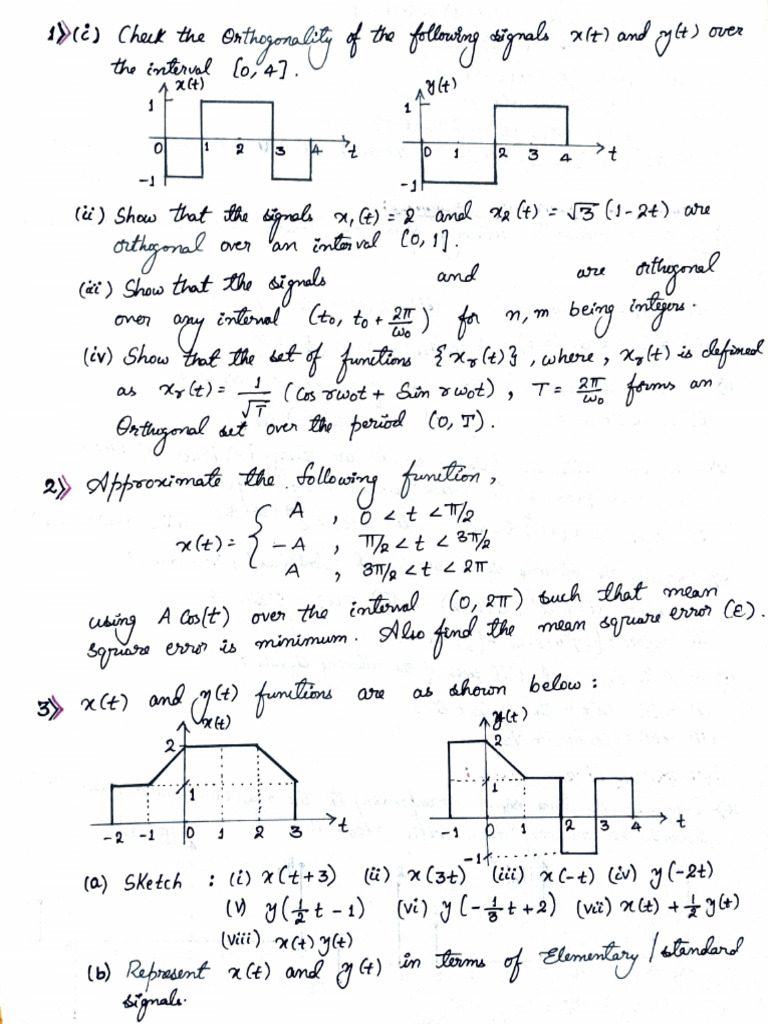 1》(i) Check the Orthogonality of the following signals x(t) and y(t) over
the interval [0, 4].
x(t)
y(t)
1
1
0 1 2 3 4 t
0 1 2 3 4 t
-1
-1
(ii) Show that the signals x₁(t) = 2 and x₂(t) = √3 (1-2t) are
orthogonal over an interval [0, 1].
(iii) Show that the signals and are orthogonal
over any interval (t₀, t₀ + 2π/ω₀) for n, m being integers.
(iv) Show that the set of functions {xᵣ(t)}, where, xᵣ(t) is defined
as xᵣ(t) = 1/√T (Cos rω₀t + Sin rω₀t), T = 2π/ω₀ forms an
Orthogonal set over the period (0, T).
2》 Approximate the following function,
x(t) = { A , 0 < t < π/2
-A , π/2 < t < 3π/2
A , 3π/2 < t < 2π
using A Cos(t) over the interval (0, 2π) such that mean
square error is minimum. Also find the mean square error (ε).
3》 x(t) and y(t) functions are as shown below :
x(t)
y(t)
2
2
1
1
-2 -1 0 1 2 3 t
-1 0 1 2 3 4 t
-1
(a) Sketch : (i) x(t+3) (ii) x(3t) (iii) x(-t) (iv) y(-2t)
(v) y(1/2 t - 1) (vi) y(-1/3 t + 2) (vii) x(t) + 1/2 y(t)
(viii) x(t) y(t)
(b) Represent x(t) and y(t) in terms of Elementary / standard
signals.